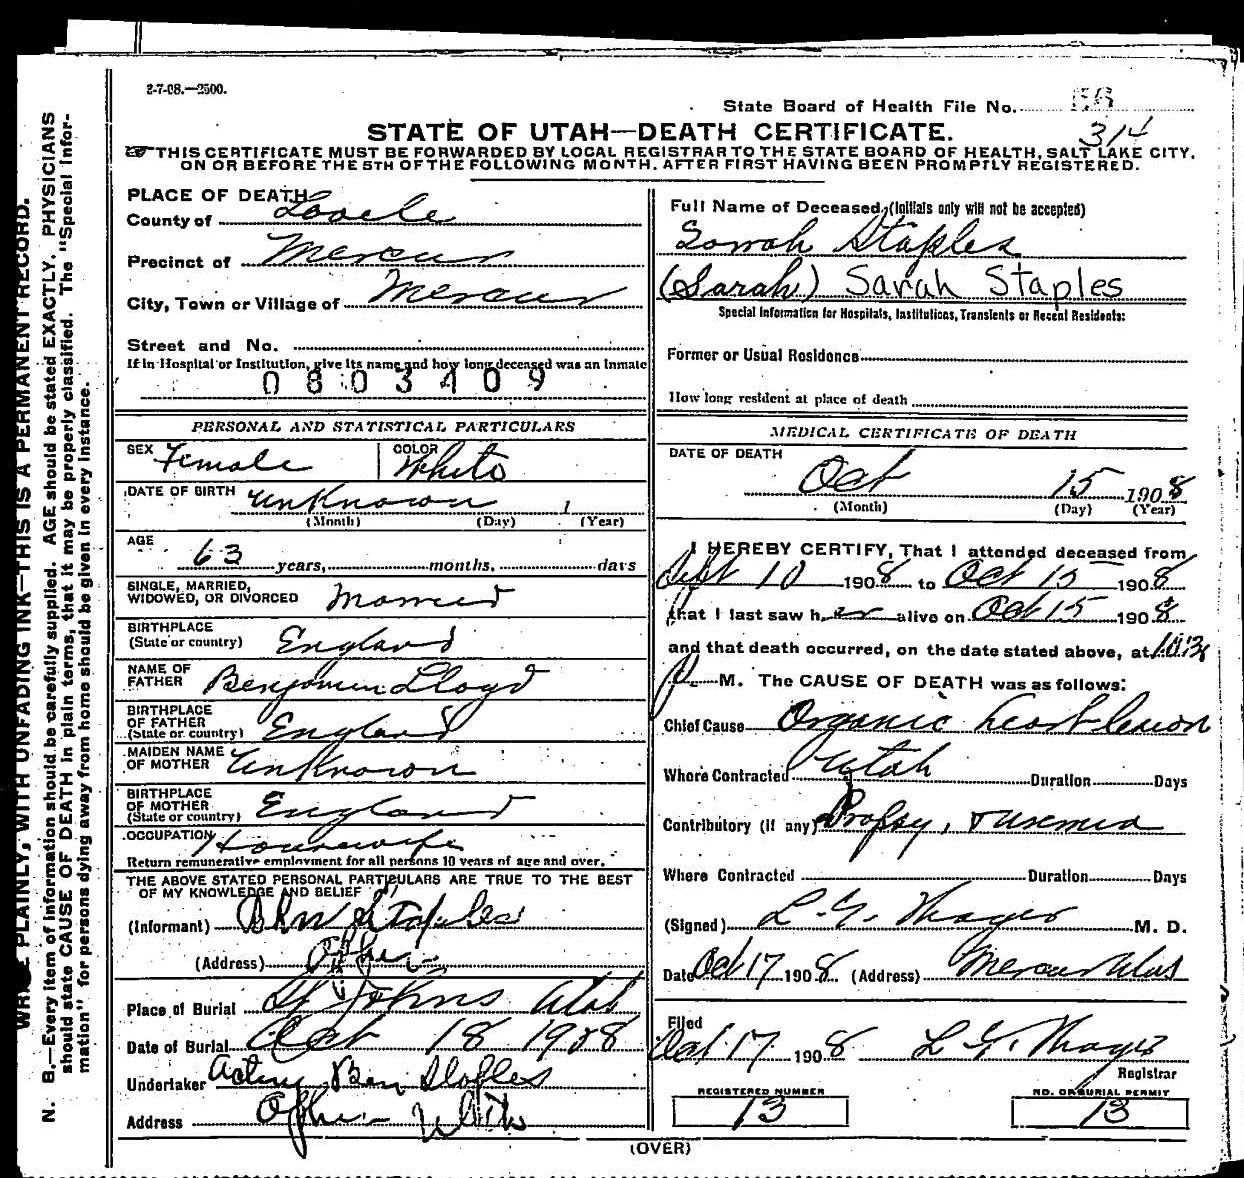 2-7-08.—2500.
State Board of Health File No.
314
STATE OF UTAH—DEATH CERTIFICATE.
THIS CERTIFICATE MUST BE FORWARDED BY LOCAL REGISTRAR TO THE STATE BOARD OF HEALTH, SALT LAKE CITY,
ON OR BEFORE THE 5TH OF THE FOLLOWING MONTH. AFTER FIRST HAVING BEEN PROMPTLY REGISTERED.
WRITE PLAINLY, WITH UNFADING INK—THIS IS A PERMANENT RECORD.
N. B.—Every item of information should be carefully supplied. AGE should be stated EXACTLY. PHYSICIANS
should state CAUSE OF DEATH in plain terms, that it may be properly classified. The "Special Infor-
mation" for persons dying away from home should be given in every instance.
PLACE OF DEATH
County of
Precinct of Mercur
City, Town or Village of Mercur
Street and No.
If in Hospital or Institution, give its name and how long deceased was an inmate
0803409
PERSONAL AND STATISTICAL PARTICULARS
SEX Female COLOR White
DATE OF BIRTH Unknown 1
(Month) (Day) (Year)
AGE
63 years, months, days
SINGLE, MARRIED,
WIDOWED, OR DIVORCED Married
BIRTHPLACE
(State or country) England
NAME OF
FATHER Benjamin Lloyd
BIRTHPLACE
OF FATHER
(State or country) England
MAIDEN NAME
OF MOTHER Unknown
BIRTHPLACE
OF MOTHER
(State or country) England
OCCUPATION Housewife
Return remunerative employment for all persons 10 years of age and over.
THE ABOVE STATED PERSONAL PARTICULARS ARE TRUE TO THE BEST
OF MY KNOWLEDGE AND BELIEF
(Informant) Staples
(Address) Ophir
Place of Burial St Johns Utah
Date of Burial Oct 18 1908
Undertaker Acting Ben Staples
Address Ophir Utah
Full Name of Deceased, (Initials only will not be accepted)
Sarah Staples
(Sarah) Sarah Staples
Special Information for Hospitals, Institutions, Transients or Recent Residents:
Former or Usual Residence
How long resident at place of death
MEDICAL CERTIFICATE OF DEATH
DATE OF DEATH
Oct 15 1908
(Month) (Day) (Year)
I HEREBY CERTIFY, That I attended deceased from
Sept 10 1908 to Oct 15 1908
that I last saw her alive on Oct 15 1908
and that death occurred, on the date stated above, at
M. The CAUSE OF DEATH was as follows:
Chief Cause Organic heart lesion
Where Contracted Utah Duration Days
Contributory (if any) Dropsy,
Where Contracted Duration Days
(Signed) L. G. Thayer M. D.
Date Oct 17 1908 (Address) Mercur Utah
Filed
Oct 17 1908 L. G. Thayer
Registrar
REGISTERED NUMBER
13
NO. OF BURIAL PERMIT
13
(OVER)